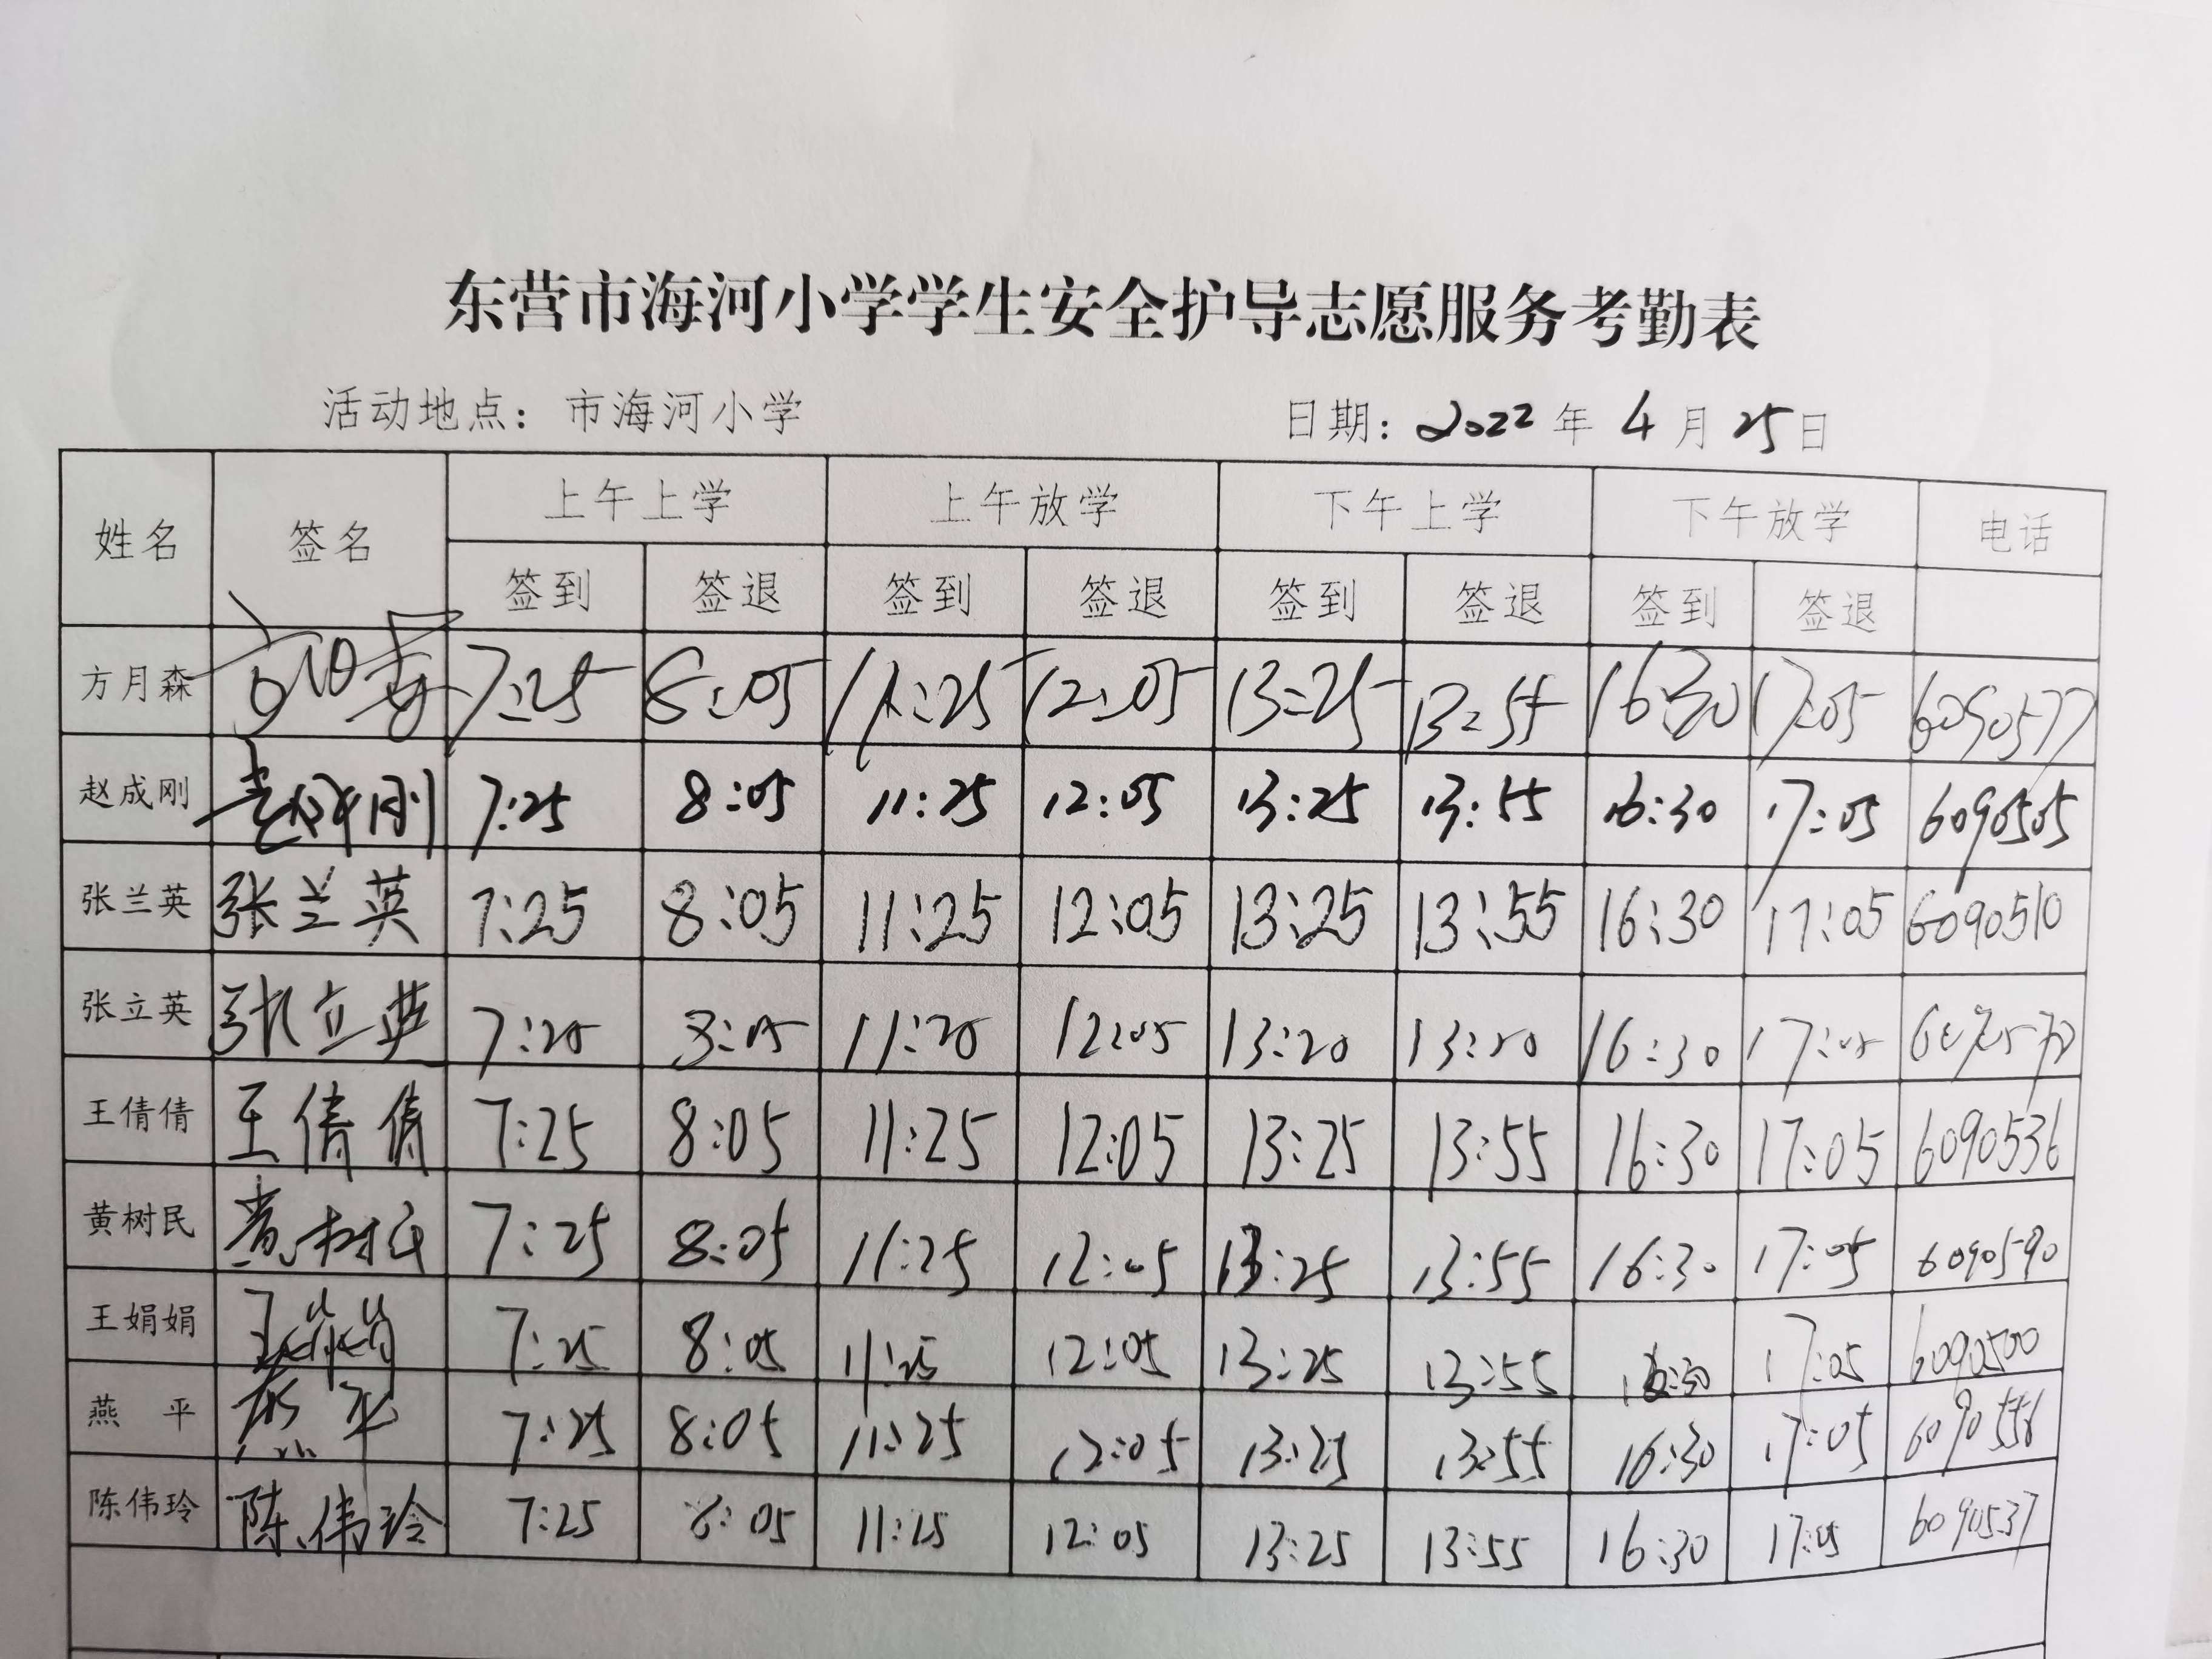 东营市海河小学学生安全护导志愿服务考勤表
活动地点：市海河小学 日期：2022年4月25日
姓名 签名 上午上学 上午放学 下午上学 下午放学 电话
签到 签退 签到 签退 签到 签退 签到 签退
方月森 方月森 7:25 8:05 11:25 12:05 13:25 13:55 16:30 17:05 6090577
赵成刚 赵成刚 7:25 8:05 11:25 12:05 13:25 13:55 16:30 17:05 6090505
张兰英 张兰英 7:25 8:05 11:25 12:05 13:25 13:55 16:30 17:05 6090510
张立英 张立英 7:20 8:05 11:20 12:05 13:20 16:30 17:05
王倩倩 王倩倩 7:25 8:05 11:25 12:05 13:25 13:55 16:30 17:05 6090536
黄树民 黄树民 7:25 8:05 11:25 12:05 13:25 13:55 16:30 17:05 6090590
王娟娟 王娟娟 7:25 8:05 11:25 12:05 13:25 13:55 16:30 17:05 6090500
燕平 燕平 7:25 8:05 11:25 12:05 13:25 13:55 16:30 17:05 6090556
陈伟玲 陈伟玲 7:25 8:05 11:25 12:05 13:25 13:55 16:30 17:05 6090537